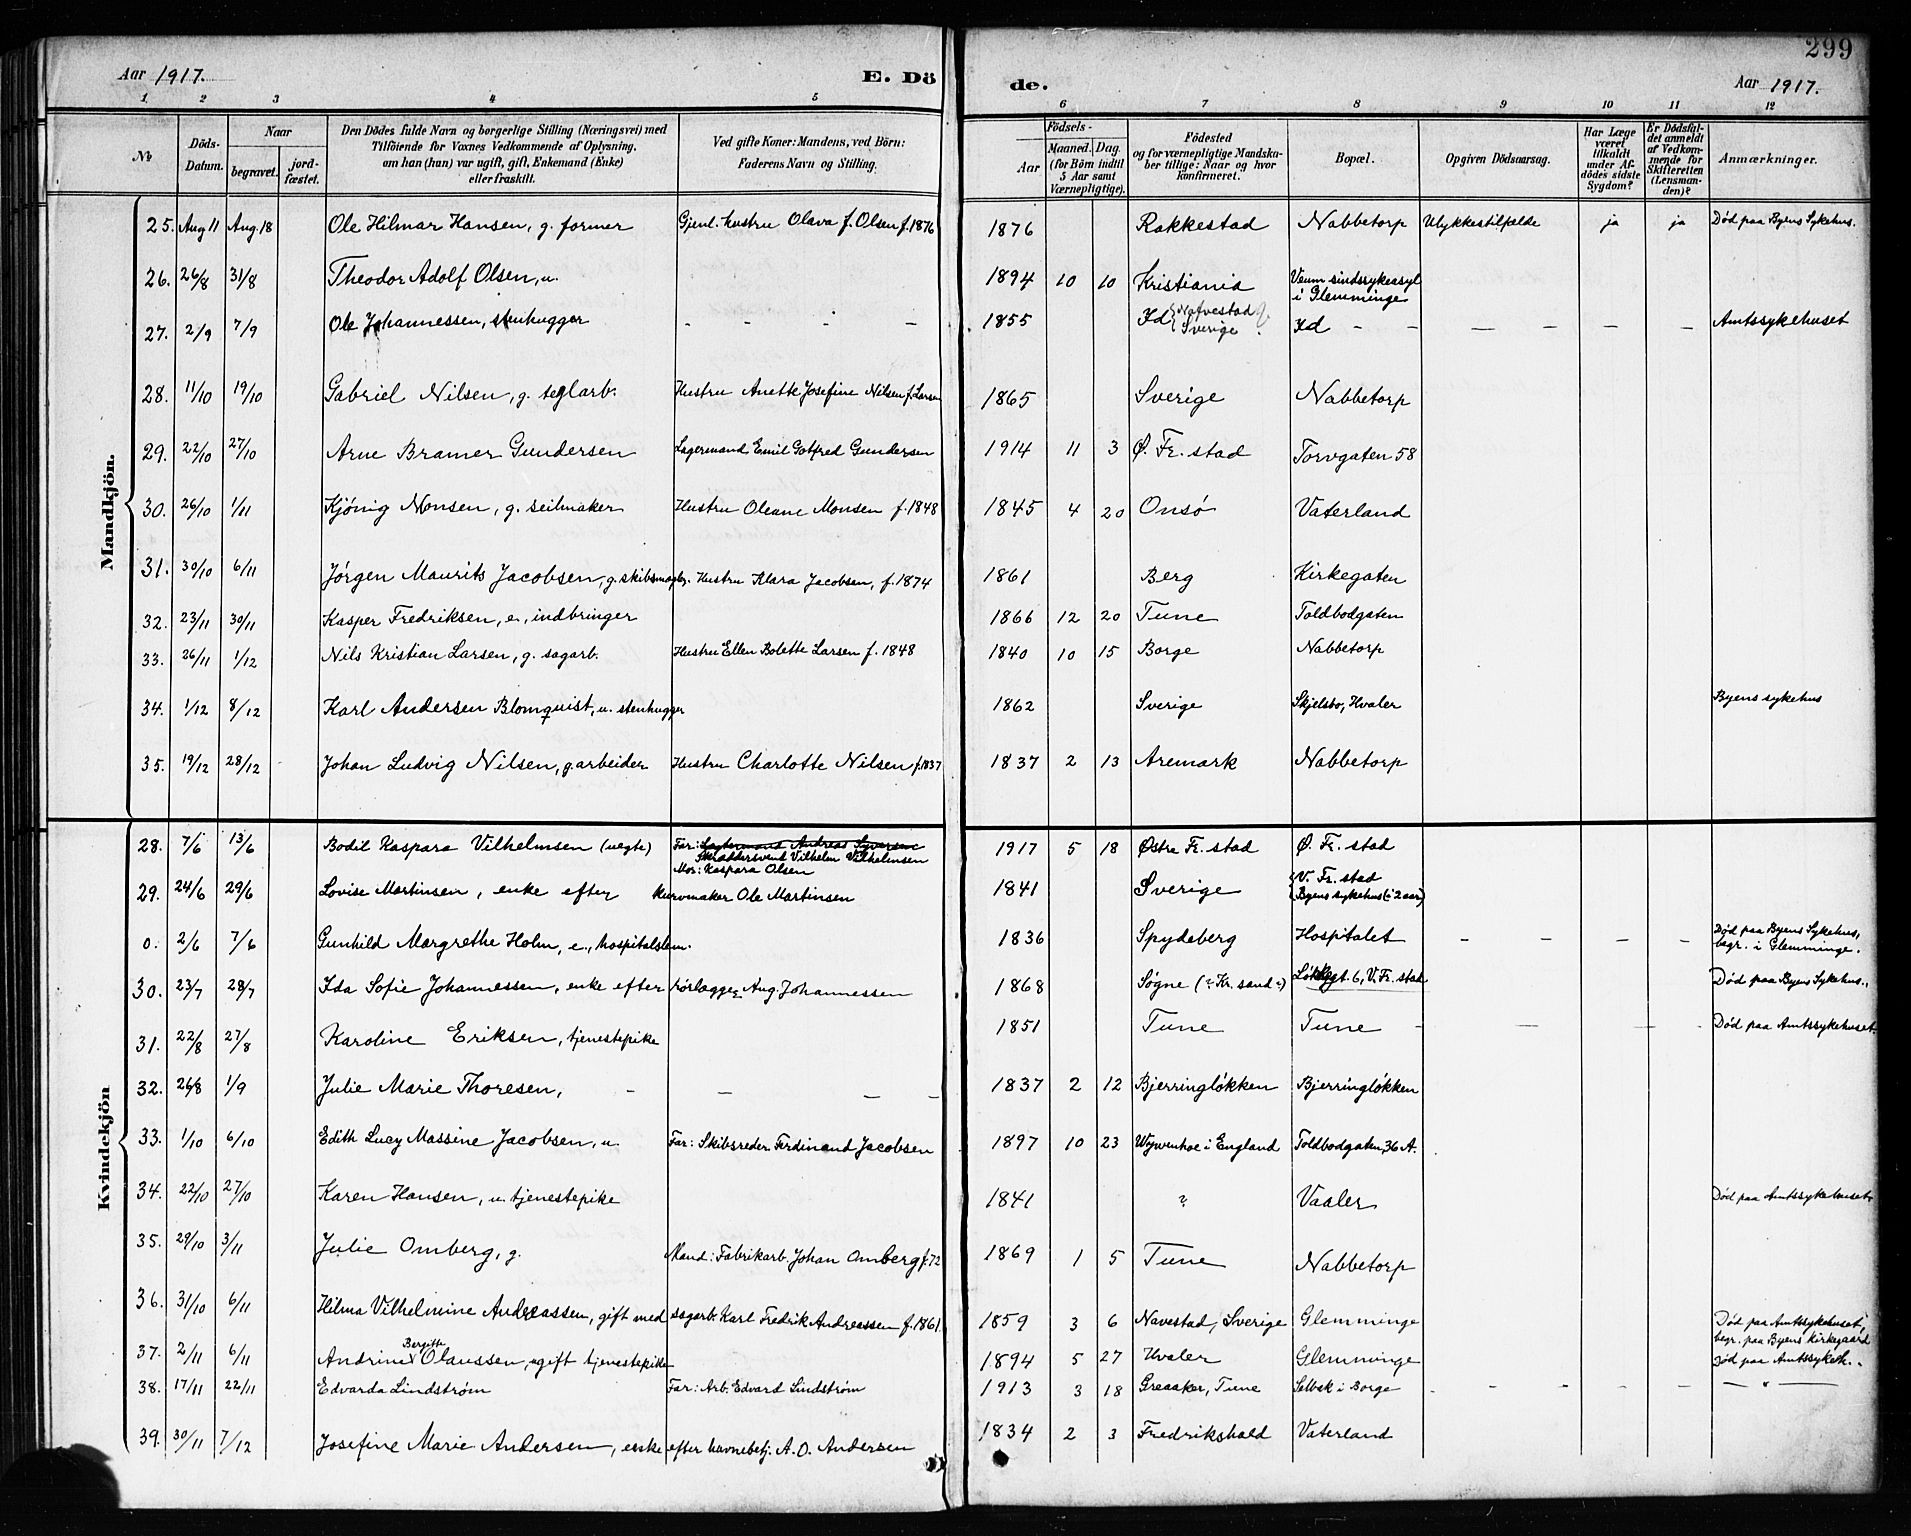 299
Aar 1917. E. Dö de. Aar 1917.
1. 2 3 4 5 6 7 8 9 10 11 12
No Döds-Datum. Naar begravet. jord-fæstet. Den Dödes fulde Navn og borgerlige Stilling (Næringsvei) med Tilföiende for Voxnes Vedkommende af Oplysning, om han (hun) var ugift, gift, Enkemand (Enke) eller fraskilt. Ved gifte Koner: Mandens, ved Börn: Faderens Navn og Stilling. Födsels- Aar Maaned. Dag. (for Börn indtil 5 Aar samt Værnepligtige). Födested og for værnepligtige Mandska-ber tillige: Naar og hvor konfirmeret. Bopæl. Opgiven Dödsaarsag. Har Læge været tilkaldt under Af-dödes sidste Sygdom? Er Dödsfal-det anmeldt af Vedkom-mende for Skifteretten (Lensman-den)? Anmærkninger.
Mandkjön.
25. Aug 11 Aug. 18 Ole Hilmar Hansen, g. former Gjenl. Hustru Olava f. Olsen f. 1876 1876 Rakkestad Nabbetorp Ulykkestilfelde ja ja Død paa Byens Sykehus.
26. 26/8 31/8 Theodor Adolf Olsen, u. 1894 10 10 Kristiania Veum sindssykeasyl i Glemminge
27. 2/9 7/9 Ole Johannessen, stenhugger - - - - 1855 Id {Nafvestad Sverige ? Id - - - - - - Amtssykehuset
28. 11/10 19/10 Gabriel Nilsen, g. teglarb. Hustru Anette Josefine Nilsen f. Larsen 1865 Sverige Nabbetorp
29. 22/10 27/10 Arne Bramer Gundersen Lagermand Emil Gotfred Gundersen 1914 11 3 Ø. Fr. stad Torvgaten 58
30. 26/10 1/11 Kjönig Monsen, g. seilmaker Hustru Oleane Monsen f. 1848 1845 4 20 Onsø Vaterland
31. 30/10 6/11 Jörgen Maurits Jacobsen, g. skibsmægler. Hustru Klara Jacobsen, f. 1874 1861 Berg Kirkegaten
32. 23/11 30/11 Kasper Fredriksen, e., indbringer 1866 12 20 Tune Toldbodgaten
33. 26/11 1/12 Nils Kristian Larsen, g. sagarb. Hustru Ellen Bolette Larsen f. 1848 1840 10 15 Borge Nabbetorp
34. 1/12 8/12 Karl Andersen Blomquist, u. stenhugger 1862 Sverige Skjelsbo, Hvaler Byens sykehus
35. 19/12 28/12 Johan Ludvig Nilsen, g. arbeider Hustru Charlotte Nilsen f. 1837 1837 2 13 Aremark Nabbetorp
Kvindekjön
28. 7/6 13/6 Bodil Kaspara Vilhelmsen (uegte) Far: Skræddersvend Vilhelm Vilhelmsen Mor: Kaspara Olsen 1917 5 18 Østre Fr. stad Ø. Fr. stad
29. 24/6 29/6 Lovise Martinsen, enke efter kurvmaker Ole Martinsen 1841 Sverige {V. Fr. stad Byens sykehus (i 2 aar)
0. 2/6 7/6 Gunhild Margrethe Holm, e., hospitalslem. 1836 Spydeberg Hospitalet - - - - Død paa Byens Sykehus, begr. i Glemminge.
30. 23/7 28/7 Ida Sofie Johannessen, enke efter rörlægger Aug. Johannessen 1868 Søgne (? Kr. sand?) 6, V. Fr. stad Død paa Byens Sykehus.
31. 22/8 27/8 Karoline Eriksen, tjenestepike 1851 Tune Tune - - - - Død paa Amtssykehuset.
32. 26/8 1/9 Julie Marie Thoresen, - - - - 1837 2 12 Bjerringlökken Bjerringlökken
33. 1/10 6/10 Edith Lucy Massine Jacobsen, u. Far: Skibsreder Ferdinand Jacobsen 1897 10 23 Wywenhoe i England Toldbodgaten 36 A.
34. 22/10 27/10 Karen Hansen, u. tjenestepike 1841 ? Vaaler Død paa Amtssykehuset
35. 29/10 3/11 Julie Omberg, g. Mand: Fabrikarb. Johan Omberg f. 72 1869 1 5 Tune Nabbetorp
36. 31/10 6/11 Hilma Vilhelmine Andreassen, gift med sagarb. Karl Fredrik Andreassen f. 1861. 1859 3 6 Navestad, Sverige Glemminge Død paa Amtssykehuset, begr. paa Byens Kirkegaard
37. 2/11 6/11 Andrine Bergitte Olaussen, ugift tjenestepike 1894 5 27 Hvaler Glemminge Død paa Amtssykeh.
38. 17/11 22/11 Edvarda Lindstrøm Far: Arb. Edvard Lindstrøm 1913 3 18 Greaaker, Tune Selbak i Borge - - - - - " -
39. 30/11 7/12 Josefine Marie Andersen, enke efter havnebetj. A. O. Andersen 1834 2 3 Fredrikshald Vaterland